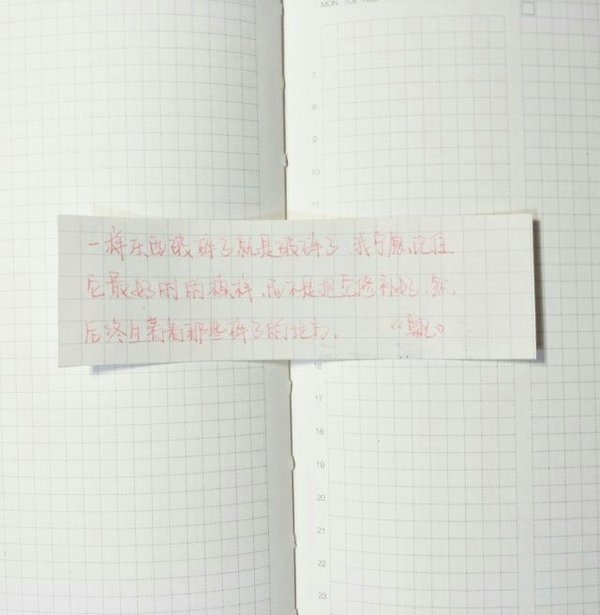 MON TUE WED
7
8
9
10
11
一样东西破碎了就是破碎了，我宁愿记住
它最好时的模样，而不是把它修补好，然
后终生看着那些碎了的地方。 《飘》
16
17
18
19
20
21
22
23